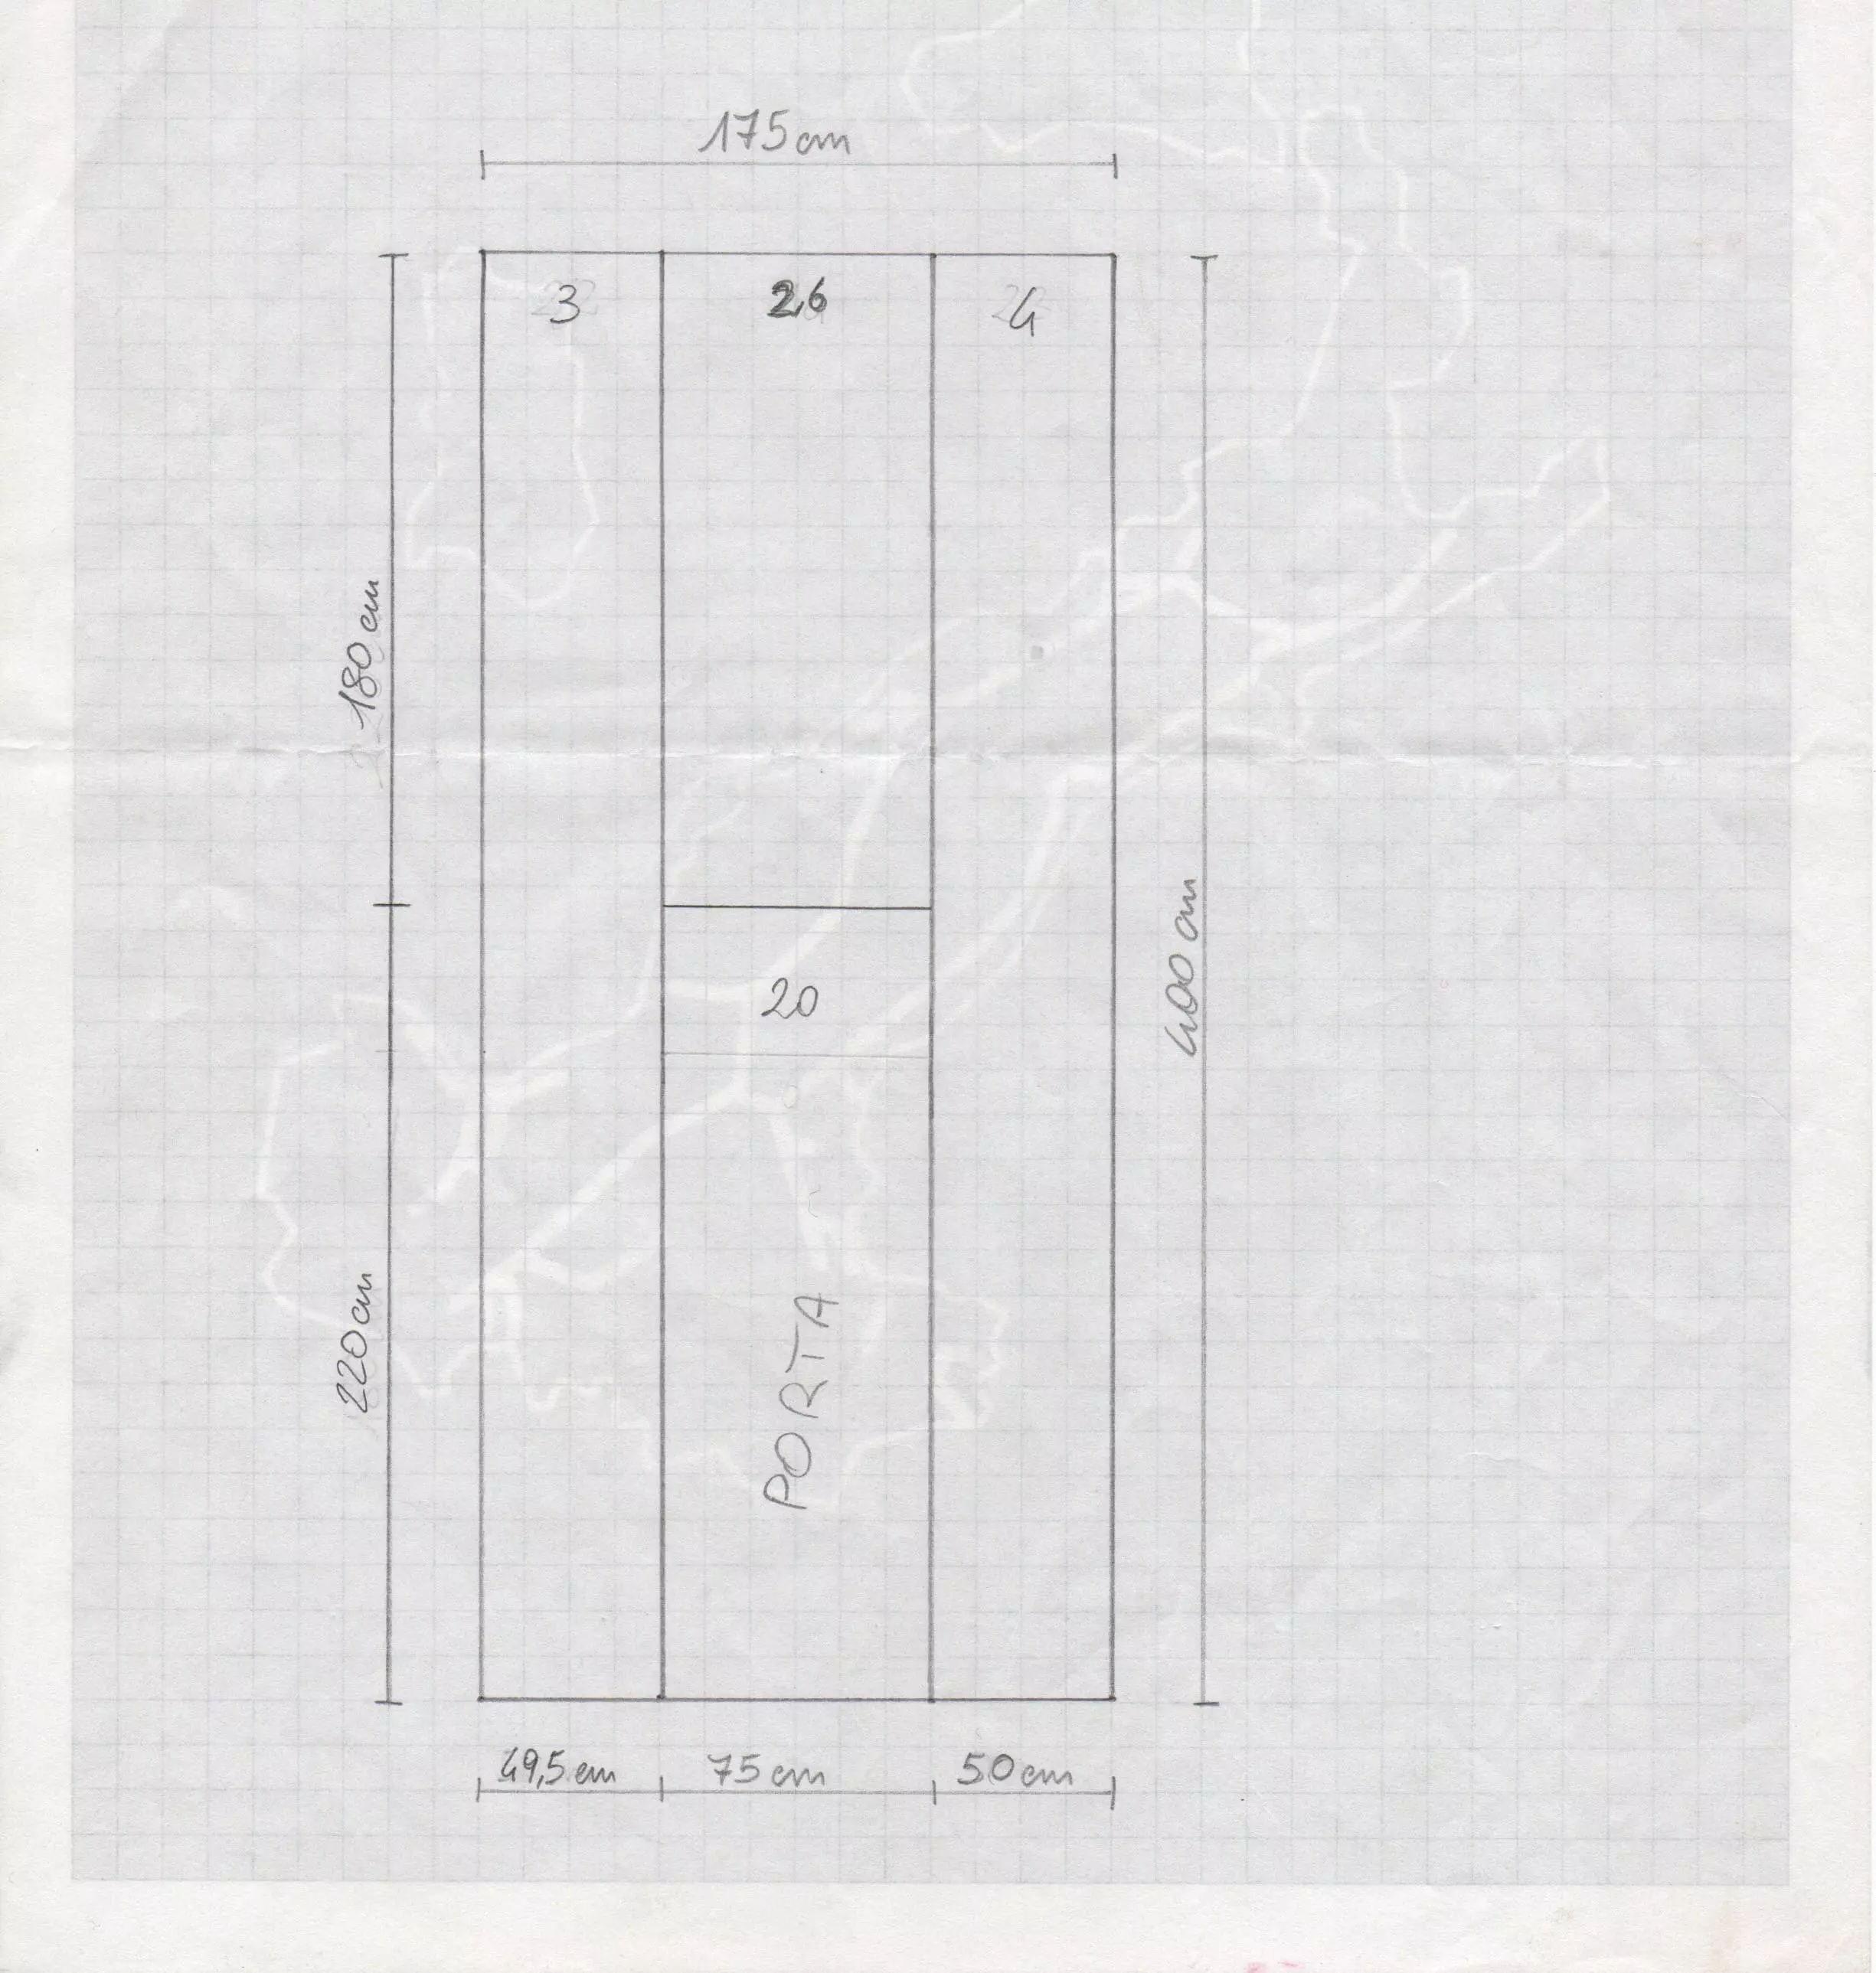 175 cm
3
26
4
180 cm
400 cm
20
220 cm
PORTA
49,5 cm
75 cm
50 cm